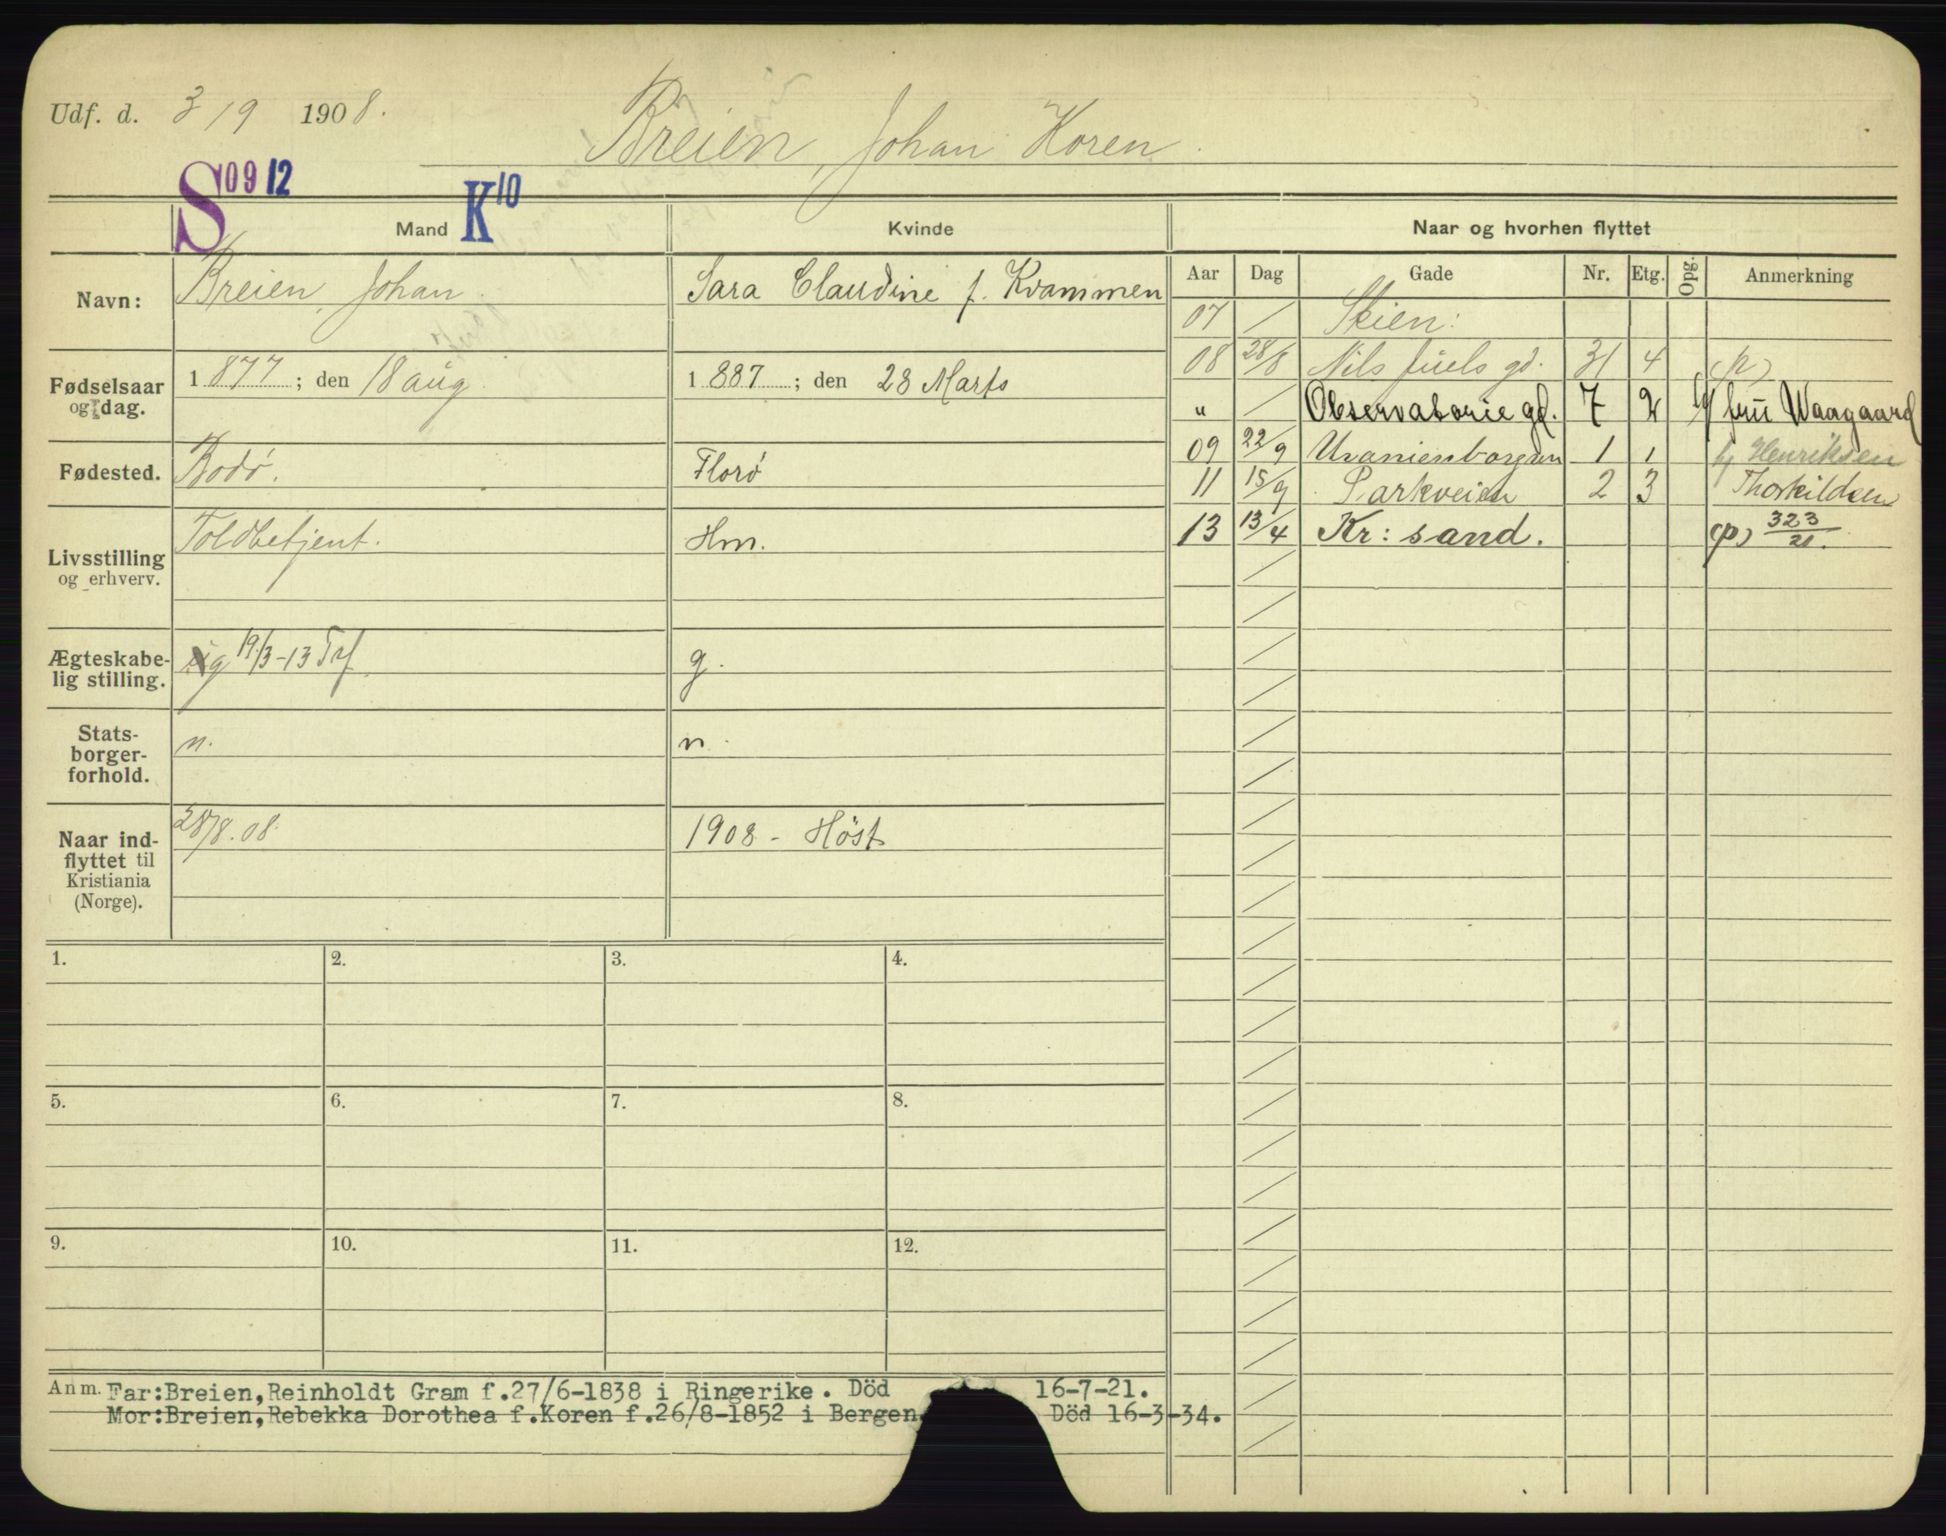 Udf. d. 3/9 1908. Breien, Johan Koren.
S 09 12 K 10
Mand Kvinde Naar og hvorhen flyttet
Navn: Breien, Johan. Sara Claudine f. Kvammen
Aar Dag Gade Nr. Etg. Opg. Anmerkning
07 Skien:
Fødselsaar og dag. 1877; den 18 aug. 1887; den 28 Marts
08 28/8 Nils Juels gd. 31 4 (p)
" Observatorie gd. 7 2 fru Waagaard
Fødested. Bodö. Florö
09 22/9 Uranienborgvn 1 1 Henriksen
11 15/9 Parkveien 2 3 Thorkildsen
13 13/4 Kr: sand. (p) 323/21.
Livsstilling og erhverv. Toldbetjent. Hm.
Ægteskabe-
lig stilling. g 19/3-13 g.
Stats-
borger-
forhold. n. n.
Naar ind-
flyttet til
Kristiania
(Norge). 28/8.08. 1908 - Höst
1. 2. 3. 4.
5. 6. 7. 8.
9. 10. 11. 12.
Anm. Far:Breien,Reinholdt Gram f.27/6-1838 i Ringerike. Död 16-7-21.
Mor:Breien,Rebekka Dorothea f.Koren f.26/8-1852 i Bergen. Död 16-3-34.